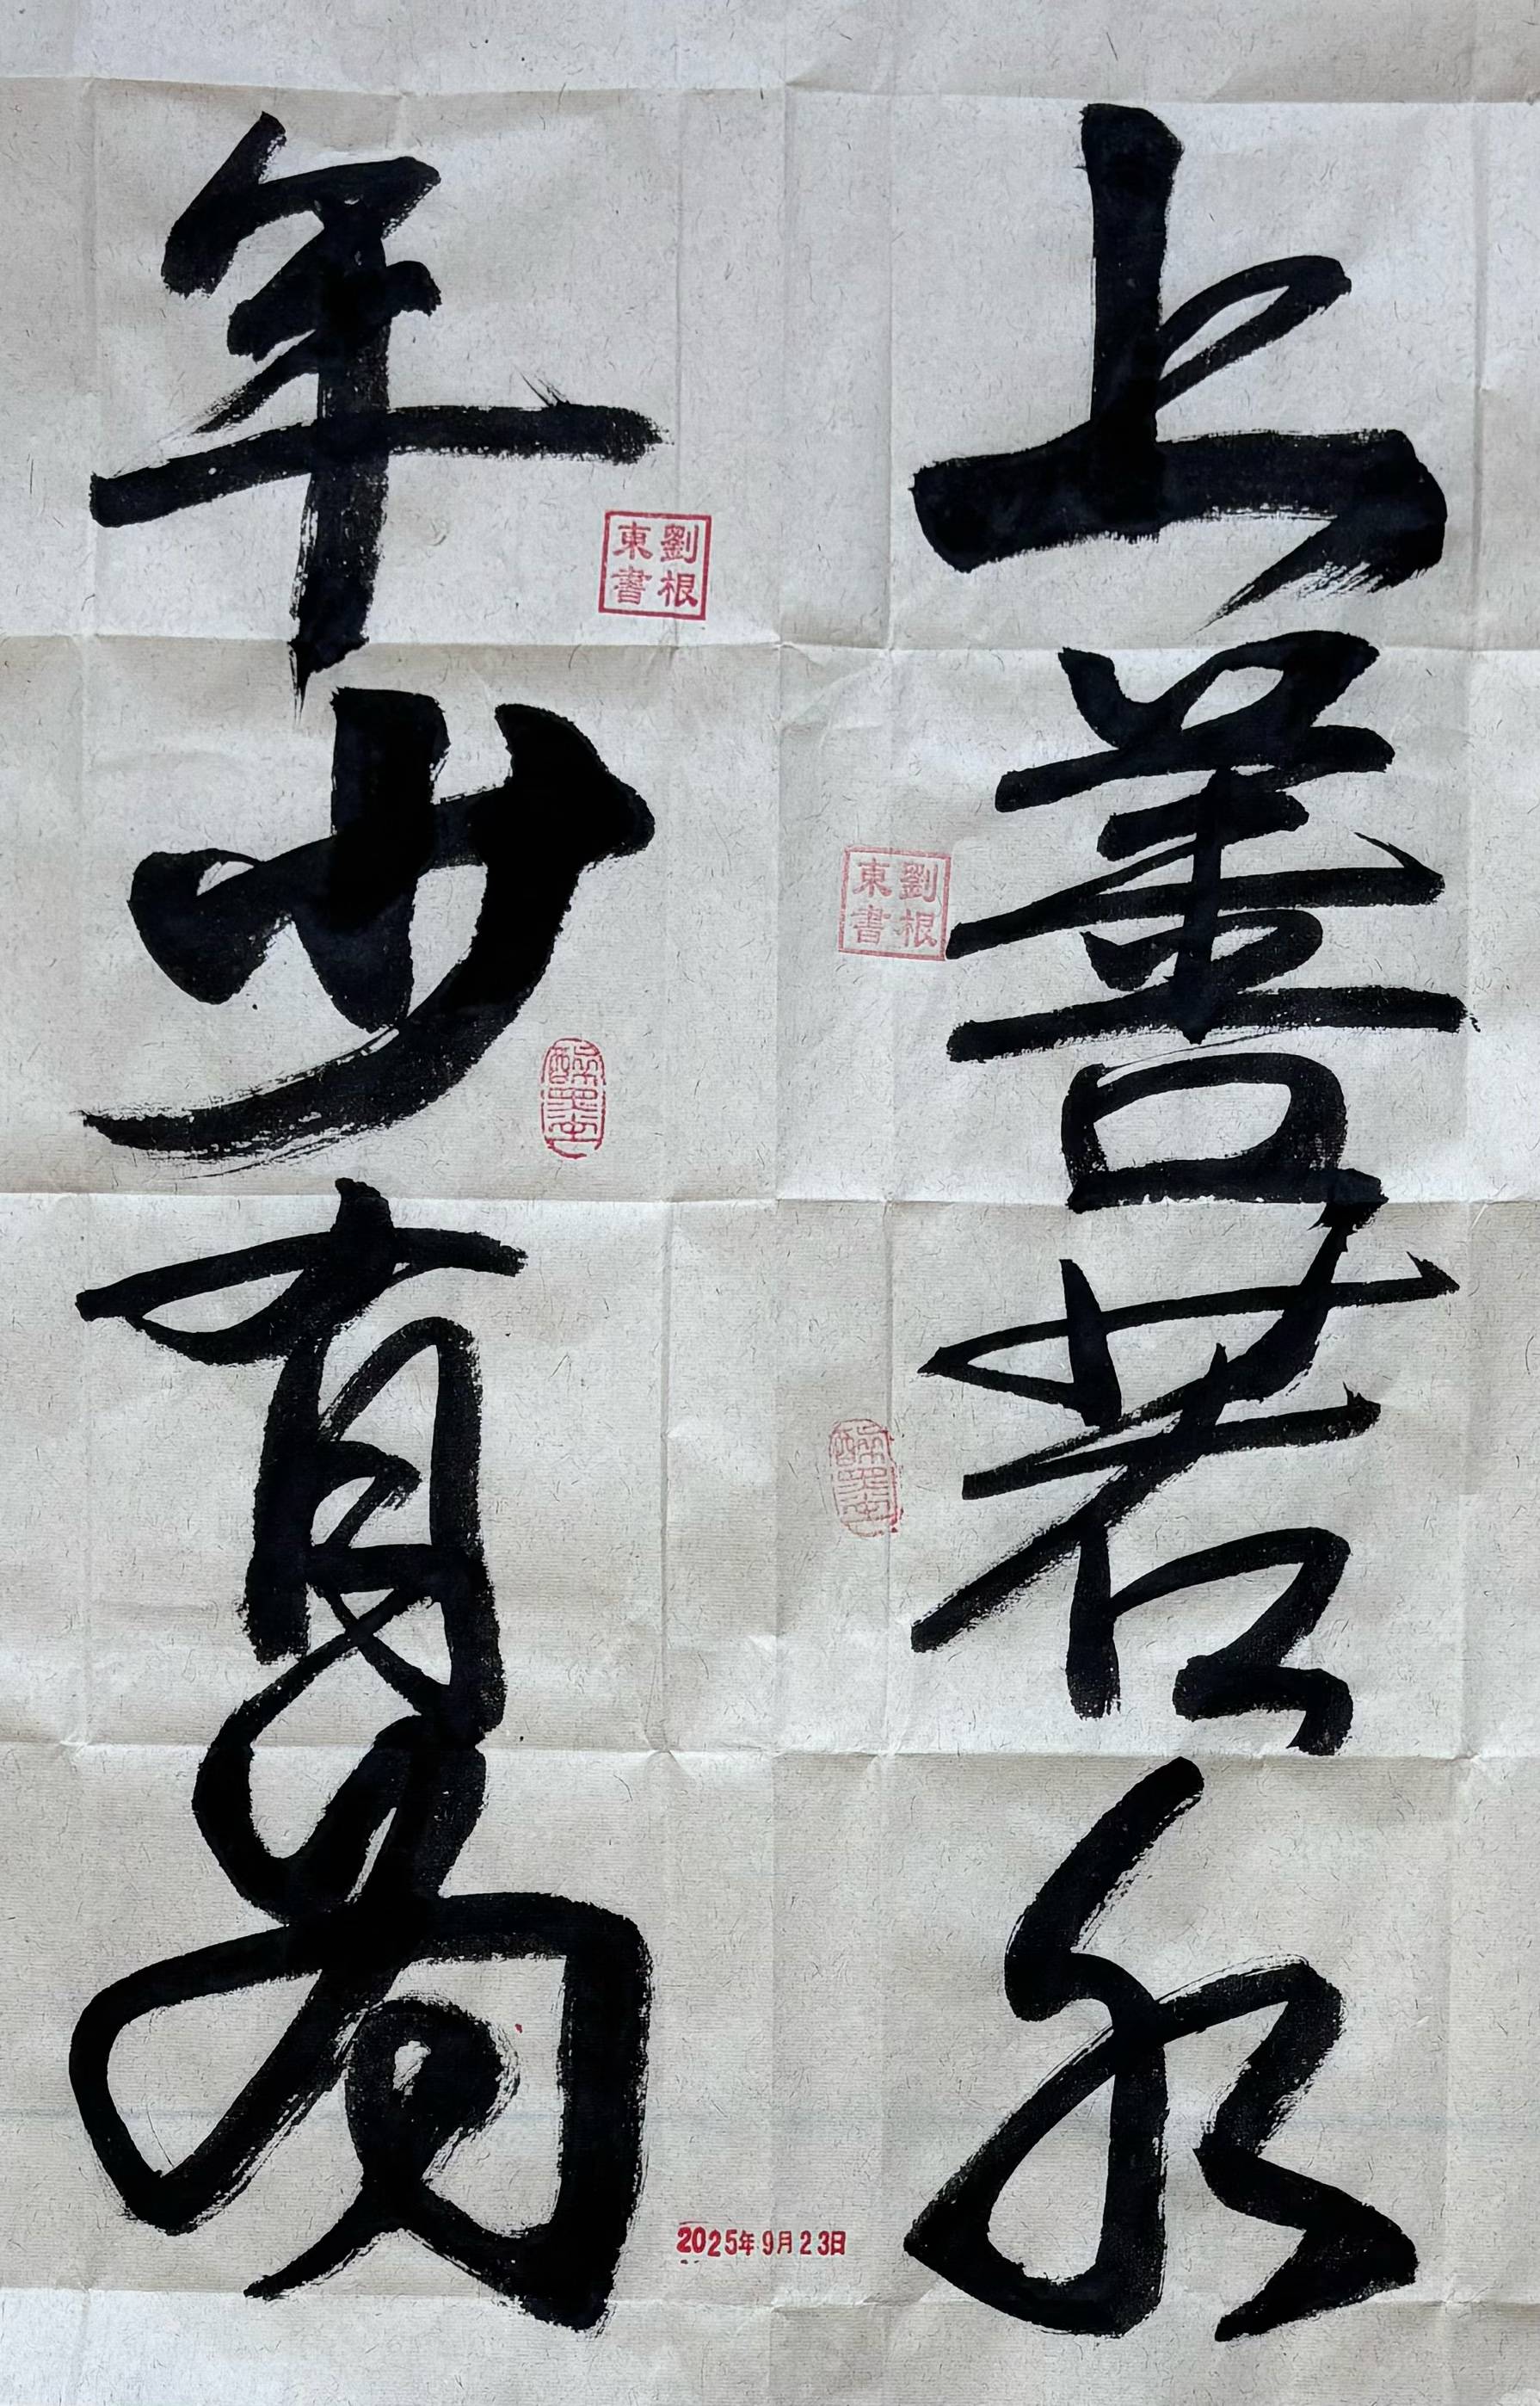 上善若水
年少有為
劉根東書
劉根東書
2025年9月23日